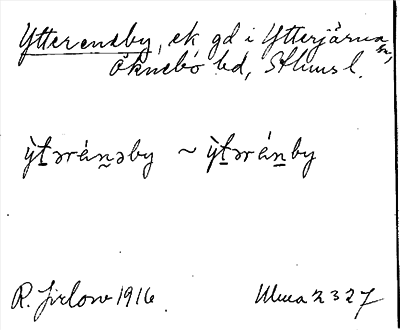 Yttereneby, ek gd i Ytterjärna sn,
Öknebo hd, Sthms l.
ỳt̲ərán̲əby ~ ỳt̲ərán̲by
R. Jirlow 1916 Ulma 2327